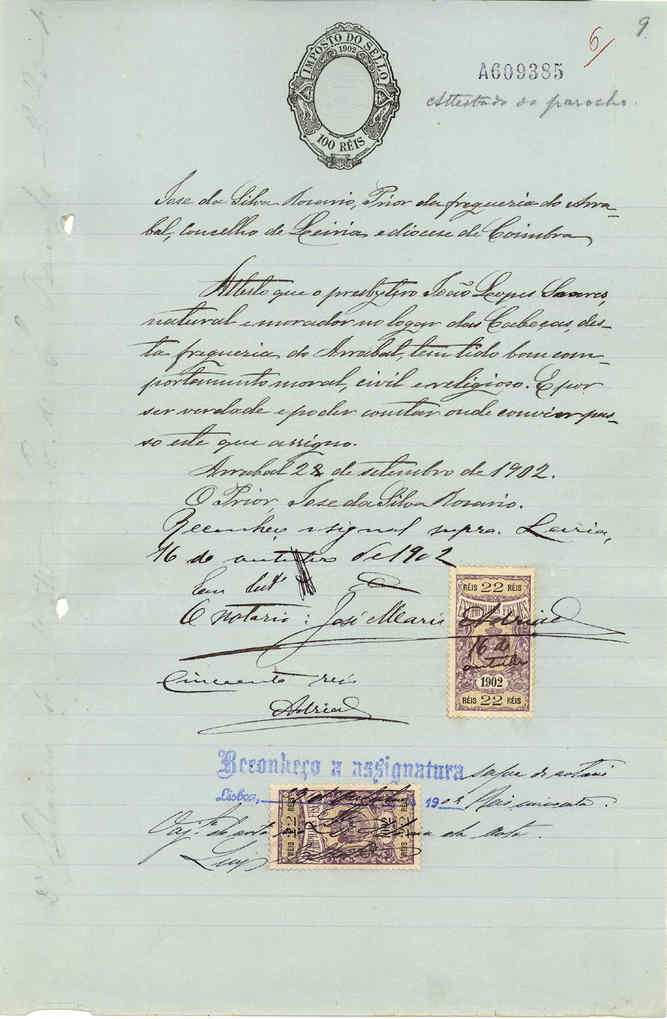 9.
6
IMPOSTO DO SELLO
1902
100 RÉIS
A609385
Attestado do parocho.
Jose da Silva Rosario, Prior da freguezia do Arra-
bal, concelho de Leiria e diocese de Coimbra
Attesto que o presbytero João Lopes Soares
natural e morador no logar das Cabeças, des-
ta freguezia do Arrabal, tem tido bom com-
portamento moral, civil e religioso. E por
ser verdade e poder constar onde convier pas-
so este que assigno.
Arrabal 28 de setembro de 1902.
O Prior, Jose da Silva Rosario.
Reconheço o signal supra. Leiria,
16 de outubro de 1902
Em
O notario: José Maria Adrião
RÉIS 22 RÉIS
16 do
outubro
1902
RÉIS 22 RÉIS
Cincoenta reis
Adrião
Reconheço a assignatura supra do notario
Lisboa, de 1902
RÉIS 22 RÉIS
1902
RÉIS 22 RÉIS
Luiz